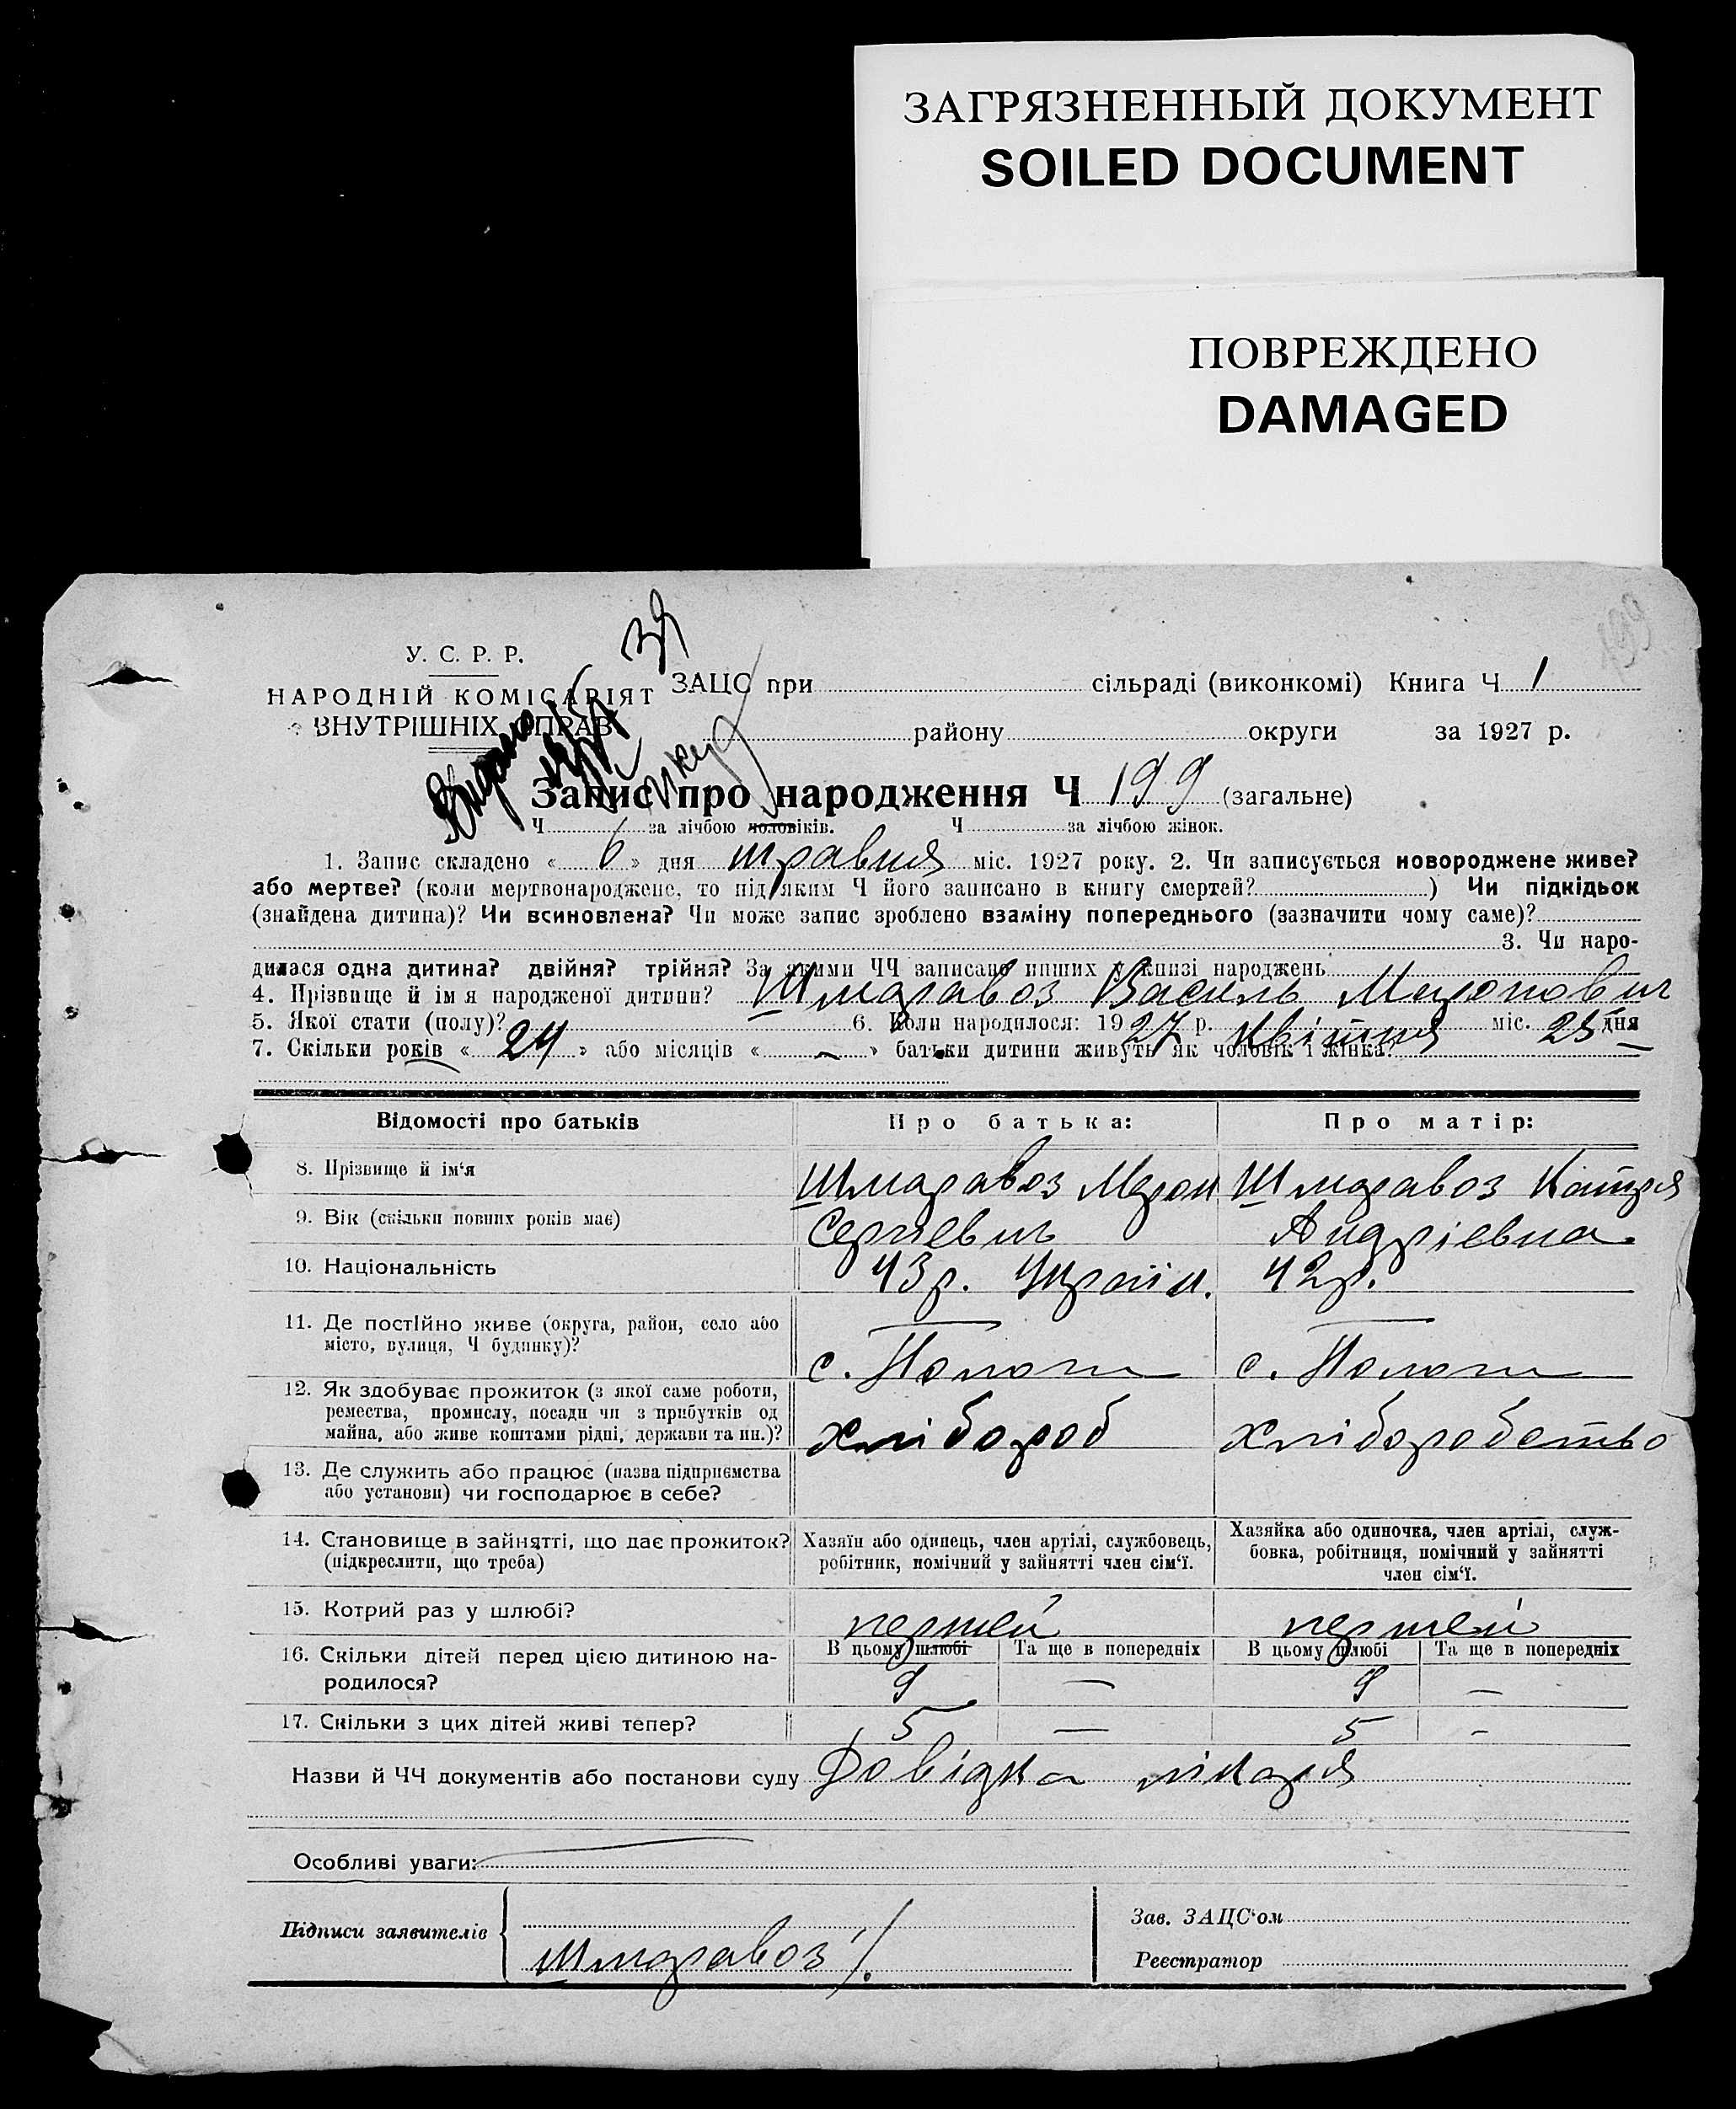 ЗАГРЯЗНЕННЫЙ ДОКУМЕНТ
SOILED DOCUMENT
ПОВРЕЖДЕНО
DAMAGED
199
У. С. Р. Р.
НАРОДНІЙ КОМІСАРІЯТ
ВНУТРІШНІХ СПРАВ
ЗАЦС при сільраді (виконкомі) Книга Ч 1
району округи за 1927 р.
Запис про народження Ч 199 (загальне)
Ч за лічбою чоловіків. Ч за лічбою жінок.
1. Запис складено « 6 » дня травня міс. 1927 року. 2. Чи записується новороджене живе?
або мертве? (коли мертвонароджене, то під яким Ч його записано в книгу смертей? ) Чи підкідьок
(знайдена дитина)? Чи всиновлена? Чи може запис зроблено взаміну попереднього (зазначити чому саме)?
3. Чи наро-
дилася одна дитина? двійня? трійня? За якими ЧЧ записано инших у книзі народжень
4. Прізвище й ім я народженої дитини? Шмаравоз Василь Миронович
5. Якої стати (полу)? 6. Коли народилося: 1927 р. Квітня міс. 25 дня
7. Скільки років « 24 » або місяців « – » батьки дитини живуть як чоловік і жінка?
Відомості про батьків Про батька: Про матір:
8. Прізвище й ім'я Шмаравоз Мирон Шмаравоз Катря
9. Вік (скільки повних років має) Сергієвич Андрієвна
10. Національність 43 р. Україн. 42 р.
11. Де постійно живе (округа, район, село або
місто, вулиця, Ч будинку)? с. Пологи с. Пологи
12. Як здобуває прожиток (з якої саме роботи,
ремества, промислу, посади чи з прибутків од
майна, або живе коштами рідні, держави та ин.)? хлібороб хліборобство
13. Де служить або працює (назва підприємства
або установи) чи господарює в себе?
14. Становище в зайнятті, що дає прожиток? Хазяїн або одинець, член артілі, службовець, Хазяйка або одиночка, член артілі, служ-
(підкреслити, що треба) робітник, помічний у зайнятті член сім'ї. бовка, робітниця, помічний у зайнятті
член сім'ї.
15. Котрий раз у шлюбі? первей первей
16. Скільки дітей перед цією дитиною на- В цьому шлюбі Та ще в попередніх В цьому шлюбі Та ще в попередніх
родилося? 9 — 9 —
17. Скільки з цих дітей живі тепер? 5 — 5 -
Назви й ЧЧ документів або постанови суду Довідка лікаря
Особливі уваги:
Підписи заявителів Шмаравоз
Зав. ЗАЦС'ом
Реєстратор